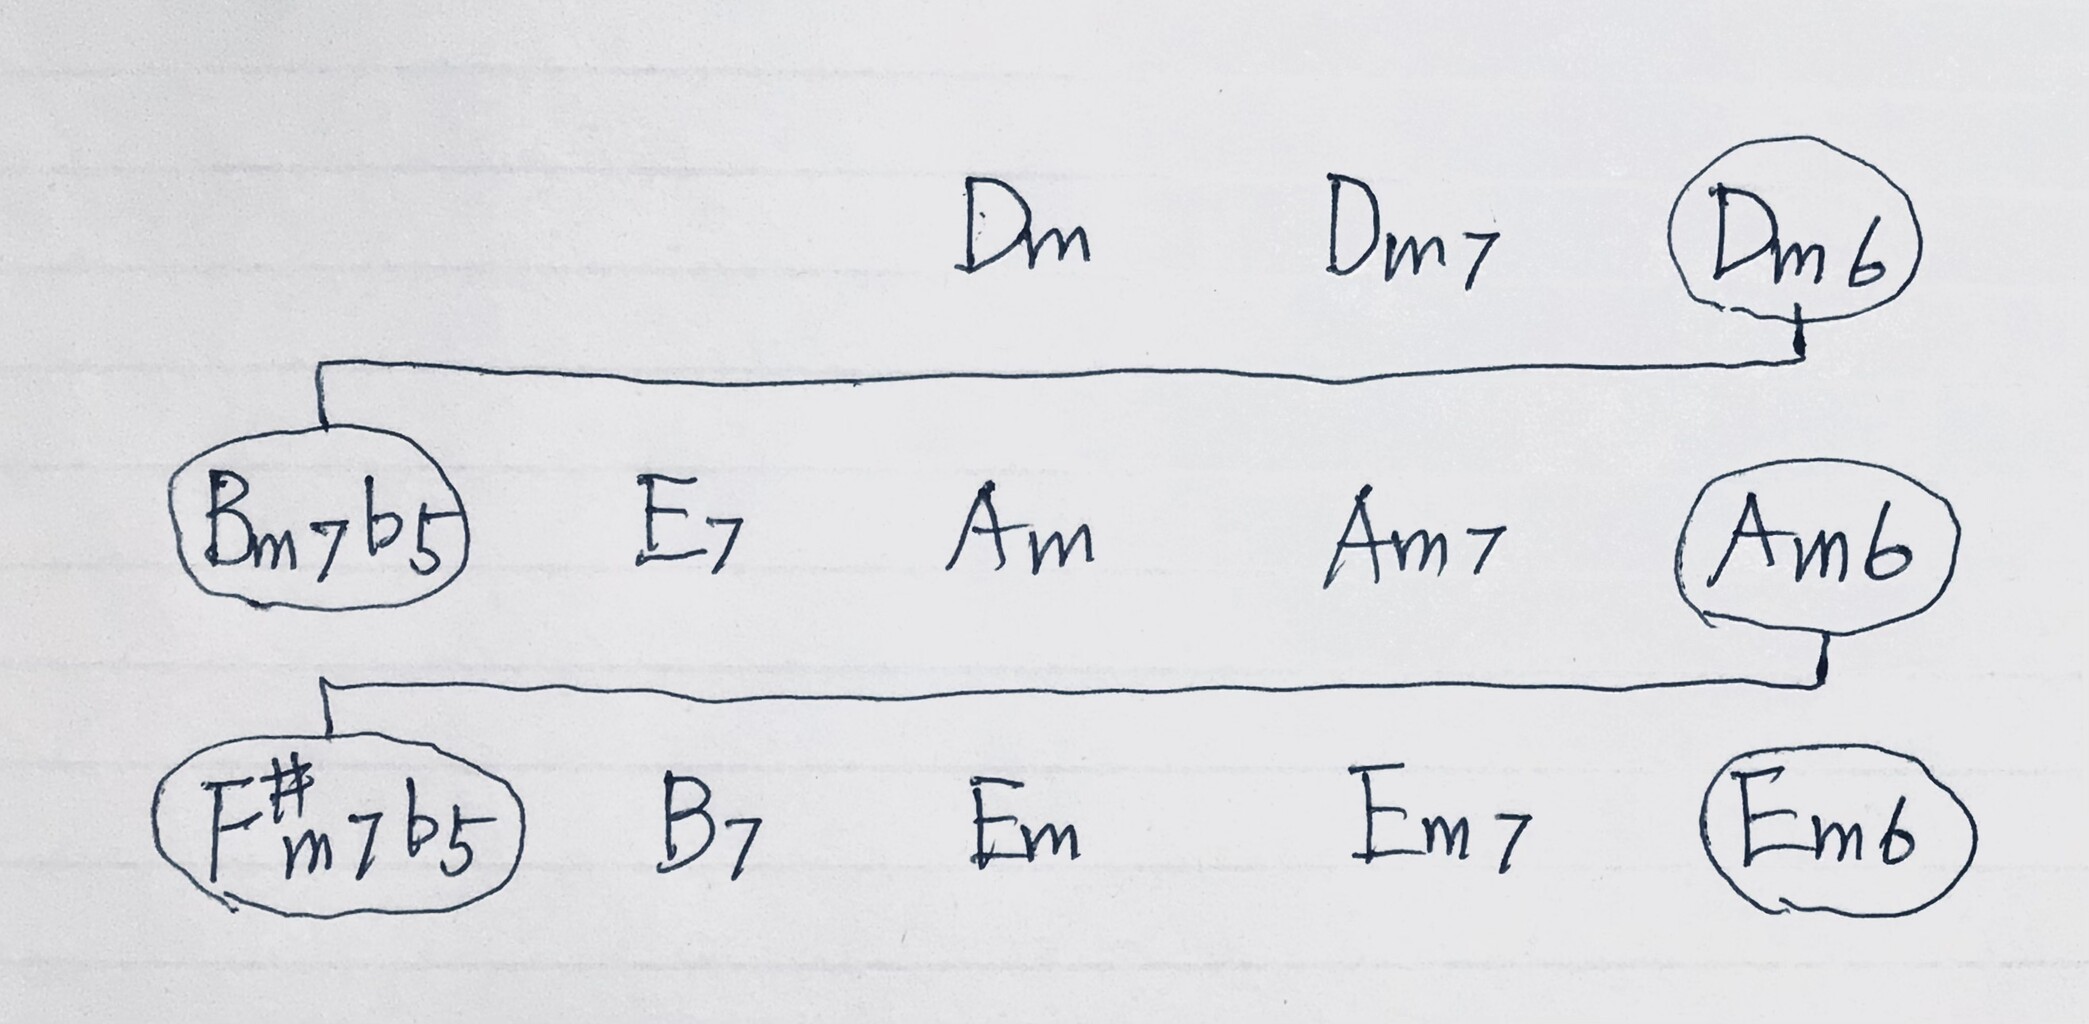 Dm Dm7 Dm6
Bm7b5 E7 Am Am7 Am6
F#m7b5 B7 Em Em7 Em6